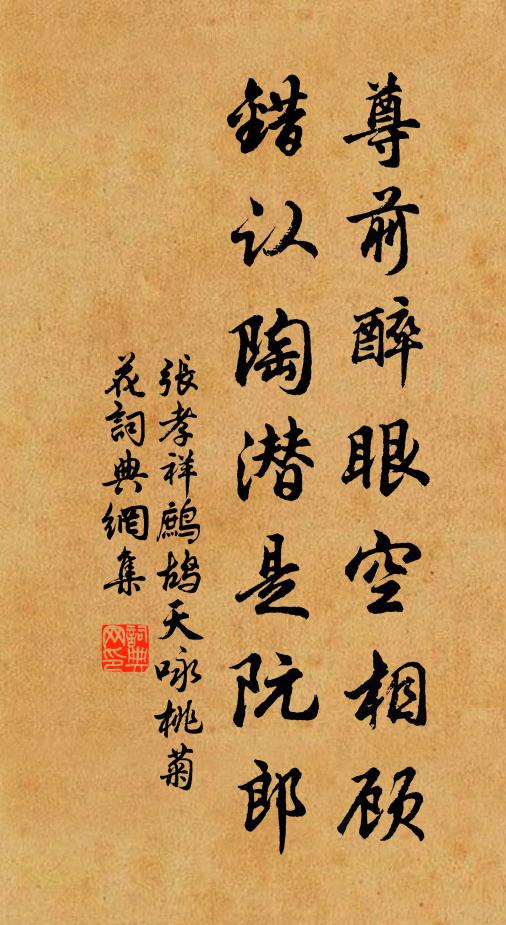 尊前醉眼空相顾
錯认陶潜是阮郎
張孝祥鷓鴣天咏桃菊
花詞典網集
詞典
网印